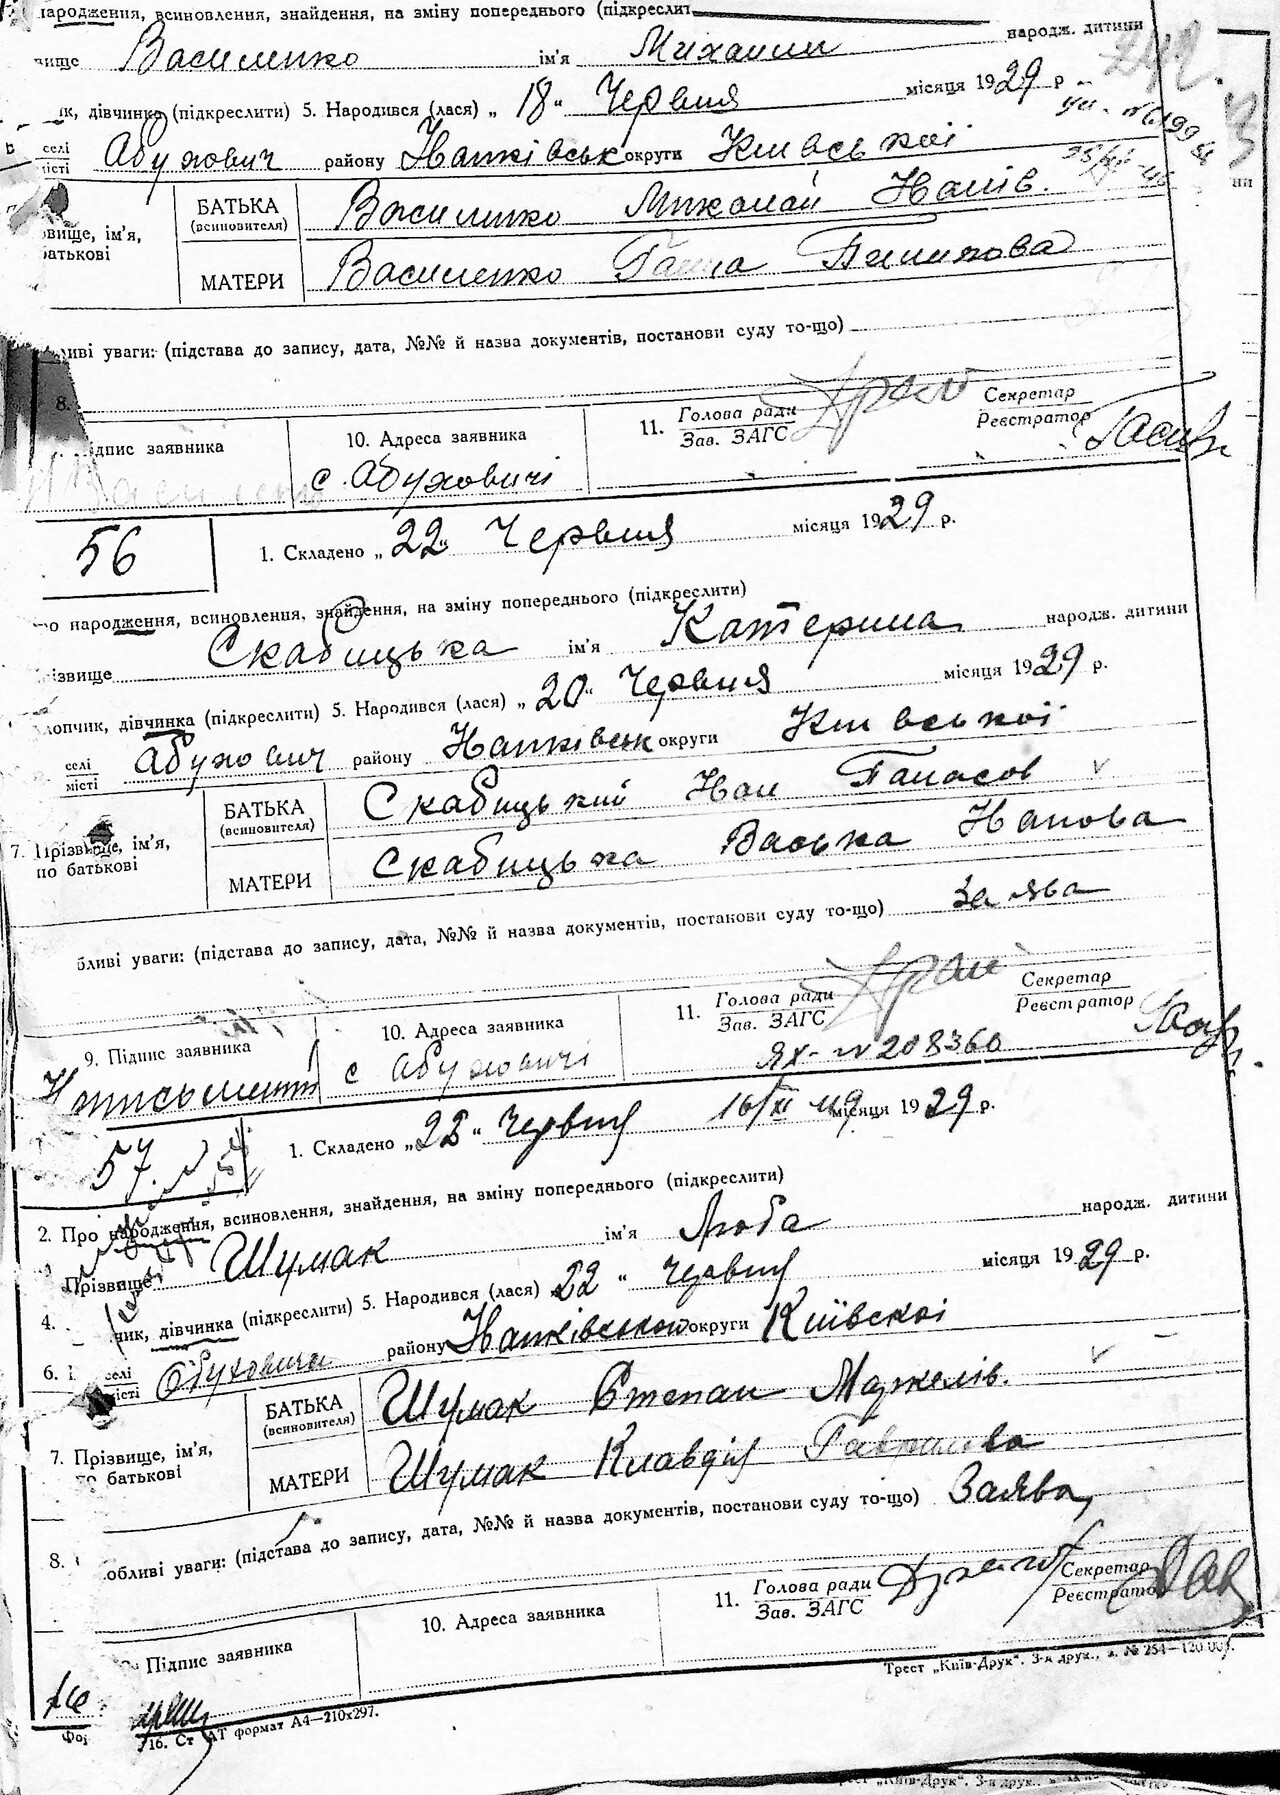 народження, всиновлення, знайдення, на зміну попереднього (підкреслит
вище Василенко ім'я Михайли народж. дитини
ик, дівчинка (підкреслити) 5. Народився (лася) „ 18 " Червня місяця 1929 р
селі місті Абухович району Напківськ округи Київської
вище, ім'я, батькові
БАТЬКА (всиновителя) Василенко Миколай Напів.
МАТЕРИ Василенко Ганна Пилипова
ливі уваги: (підстава до запису, дата, №№ й назва документів, постанови суду то-що)
8.
ідпис заявника 10. Адреса заявника 11. Голова ради Зав. ЗАГС Секретар Реєстратор
с. Абуховичі
56 1. Складено „ 22 " Червня місяця 1929 р.
о народження, всиновлення, знайдення, на зміну попереднього (підкреслити)
різвище Скабицька ім'я Катерина народж. дитини
лопчик, дівчинка (підкреслити) 5. Народився (лася) „ 20 " Червня місяця 1929 р.
селі місті Абухович району Напківськ округи Київської
7. Прізвище, ім'я, по батькові
БАТЬКА (всиновителя) Скабицький Нан Панасов
МАТЕРИ Скабицька Васька Напова
бливі уваги: (підстава до запису, дата, №№ й назва документів, постанови суду то-що) Заява
9. Підпис заявника 10. Адреса заявника 11. Голова ради Зав. ЗАГС Секретар Реєстратор
с Абуховичі ЯХ-№ 208360
16/XI 49
57. 1. Складено „ 22 " Червня місяця 1929 р.
2. Про народження, всиновлення, знайдення, на зміну попереднього (підкреслити)
Прізвище Шумак ім'я Люба народж. дитини
4. чик, дівчинка (підкреслити) 5. Народився (лася) 22 " Червня місяця 1929 р.
6. селі місті Обуховичи району Напківського округи Київскої
7. Прізвище, ім'я, по батькові
БАТЬКА (всиновителя) Шумак Степан Маркелів.
МАТЕРИ Шумак Клавдія Гаврилова
8. обливі уваги: (підстава до запису, дату, №№ й назва документів, постанови суду то-що) Заява,
Підпис заявника 10. Адреса заявника 11. Голова ради Зав. ЗАГС Секретар Реєстратор
Трест „Київ-Друк". 3-я друк., з. № 254—120.000.
16. Ст АТ формат А4—210х297.